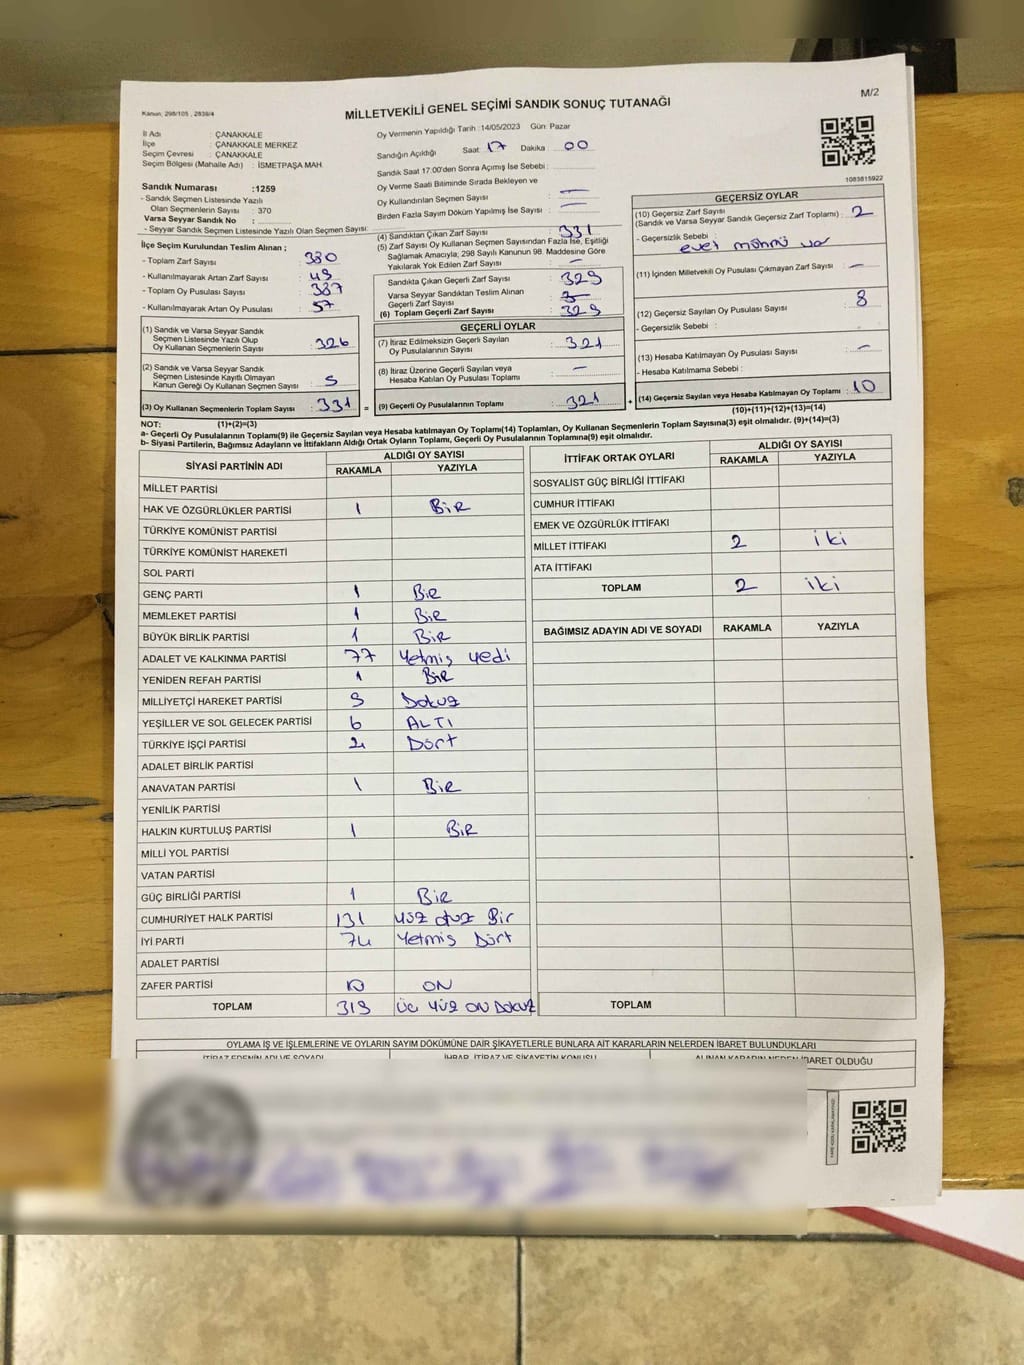 Kanun; 298/105 , 2839/4
MİLLETVEKİLİ GENEL SEÇİMİ SANDIK SONUÇ TUTANAĞI
M/2
İl Adı : ÇANAKKALE
İlçe : ÇANAKKALE MERKEZ
Seçim Çevresi : ÇANAKKALE
Seçim Bölgesi (Mahalle Adı) : İSMETPAŞA MAH.
Oy Vermenin Yapıldığı Tarih :14/05/2023 Gün: Pazar
Sandığın Açıldığı Saat 17 Dakika 00
Sandık Saat 17:00'den Sonra Açımış İse Sebebi :
Oy Verme Saati Bitiminde Sırada Bekleyen ve
Oy Kullandırılan Seçmen Sayısı : —
Birden Fazla Sayım Döküm Yapılmış İse Sayısı : —
1083815922
Sandık Numarası :1259
- Sandık Seçmen Listesinde Yazılı
Olan Seçmenlerin Sayısı : 370
Varsa Seyyar Sandık No :
- Seyyar Sandık Seçmen Listesinde Yazılı Olan Seçmen Sayısı:
İlçe Seçim Kurulundan Teslim Alınan ;
- Toplam Zarf Sayısı : 380
- Kullanılmayarak Artan Zarf Sayısı : 49
- Toplam Oy Pusulası Sayısı : 387
- Kullanılmayarak Artan Oy Pusulası : 57
(1) Sandık ve Varsa Seyyar Sandık
Seçmen Listesinde Yazılı Olup
Oy Kullanan Seçmenlerin Sayısı : 326
(2) Sandık ve Varsa Seyyar Sandık
Seçmen Listesinde Kayıtlı Olmayan
Kanun Gereği Oy Kullanan Seçmen Sayısı : 5
(3) Oy Kullanan Seçmenlerin Toplam Sayısı : 331 =
(4) Sandıktan Çıkan Zarf Sayısı : 331
(5) Zarf Sayısı Oy Kullanan Seçmen Sayısından Fazla İse, Eşitliği
Sağlamak Amacıyla; 298 Sayılı Kanunun 98. Maddesine Göre
Yakılarak Yok Edilen Zarf Sayısı : —
Sandıkta Çıkan Geçerli Zarf Sayısı : 329
Varsa Seyyar Sandıktan Teslim Alınan
Geçerli Zarf Sayısı :
(6) Toplam Geçerli Zarf Sayısı : 329
GEÇERLİ OYLAR
(7) İtiraz Edilmeksizin Geçerli Sayılan
Oy Pusulalarının Sayısı : 321
(8) İtiraz Üzerine Geçerli Sayılan veya
Hesaba Katılan Oy Pusulası Toplamı : —
(9) Geçerli Oy Pusulalarının Toplamı : 321 +
GEÇERSİZ OYLAR
(10) Geçersiz Zarf Sayısı
(Sandık ve Varsa Seyyar Sandık Geçersiz Zarf Toplamı) : 2
- Geçersizlik Sebebi : evet mührü var
(11) İçinden Milletvekili Oy Pusulası Çıkmayan Zarf Sayısı : —
(12) Geçersiz Sayılan Oy Pusulası Sayısı : 8
- Geçersizlik Sebebi :
(13) Hesaba Katılmayan Oy Pusulası Sayısı : —
- Hesaba Katılmama Sebebi :
(14) Geçersiz Sayılan veya Hesaba Katılmayan Oy Toplamı : 10
NOT: (1)+(2)=(3)
(10)+(11)+(12)+(13)=(14)
a- Geçerli Oy Pusulalarının Toplamı(9) ile Geçersiz Sayılan veya Hesaba katılmayan Oy Toplamı(14) Toplamları, Oy Kullanan Seçmenlerin Toplam Sayısına(3) eşit olmalıdır. (9)+(14)=(3)
b- Siyasi Partilerin, Bağımsız Adayların ve İttifakların Aldığı Ortak Oyların Toplamı, Geçerli Oy Pusulalarının Toplamına(9) eşit olmalıdır.
SİYASİ PARTİNİN ADI ALDIĞI OY SAYISI
RAKAMLA YAZIYLA
MİLLET PARTİSİ
HAK VE ÖZGÜRLÜKLER PARTİSİ 1 BİR
TÜRKİYE KOMÜNİST PARTİSİ
TÜRKİYE KOMÜNİST HAREKETİ
SOL PARTİ
GENÇ PARTİ 1 BİR
MEMLEKET PARTİSİ 1 BİR
BÜYÜK BİRLİK PARTİSİ 1 BİR
ADALET VE KALKINMA PARTİSİ 77 Yetmiş yedi
YENİDEN REFAH PARTİSİ 1 BİR
MİLLİYETÇİ HAREKET PARTİSİ 9 Dokuz
YEŞİLLER VE SOL GELECEK PARTİSİ 6 ALTI
TÜRKİYE İŞÇİ PARTİSİ 4 Dört
ADALET BİRLİK PARTİSİ
ANAVATAN PARTİSİ 1 BİR
YENİLİK PARTİSİ
HALKIN KURTULUŞ PARTİSİ 1 BİR
MİLLİ YOL PARTİSİ
VATAN PARTİSİ
GÜÇ BİRLİĞİ PARTİSİ 1 BİR
CUMHURİYET HALK PARTİSİ 131 yüz otuz Bir
İYİ PARTİ 74 Yetmiş Dört
ADALET PARTİSİ
ZAFER PARTİSİ 10 ON
TOPLAM 319 üç yüz ON Dokuz
İTTİFAK ORTAK OYLARI ALDIĞI OY SAYISI
RAKAMLA YAZIYLA
SOSYALİST GÜÇ BİRLİĞİ İTTİFAKI
CUMHUR İTTİFAKI
EMEK VE ÖZGÜRLÜK İTTİFAKI
MİLLET İTTİFAKI 2 iki
ATA İTTİFAKI
TOPLAM 2 iki
BAĞIMSIZ ADAYIN ADI VE SOYADI RAKAMLA YAZIYLA
TOPLAM
OYLAMA İŞ VE İŞLEMLERİNE VE OYLARIN SAYIM DÖKÜMÜNE DAİR ŞİKAYETLERLE BUNLARA AİT KARARLARIN NELERDEN İBARET BULUNDUKLARI
İTİRAZ EDENİN ADI VE SOYADI İHBAR, İTİRAZ VE ŞİKAYETİN KONUSU ALINAN KARARIN NEDEN İBARET OLDUĞU